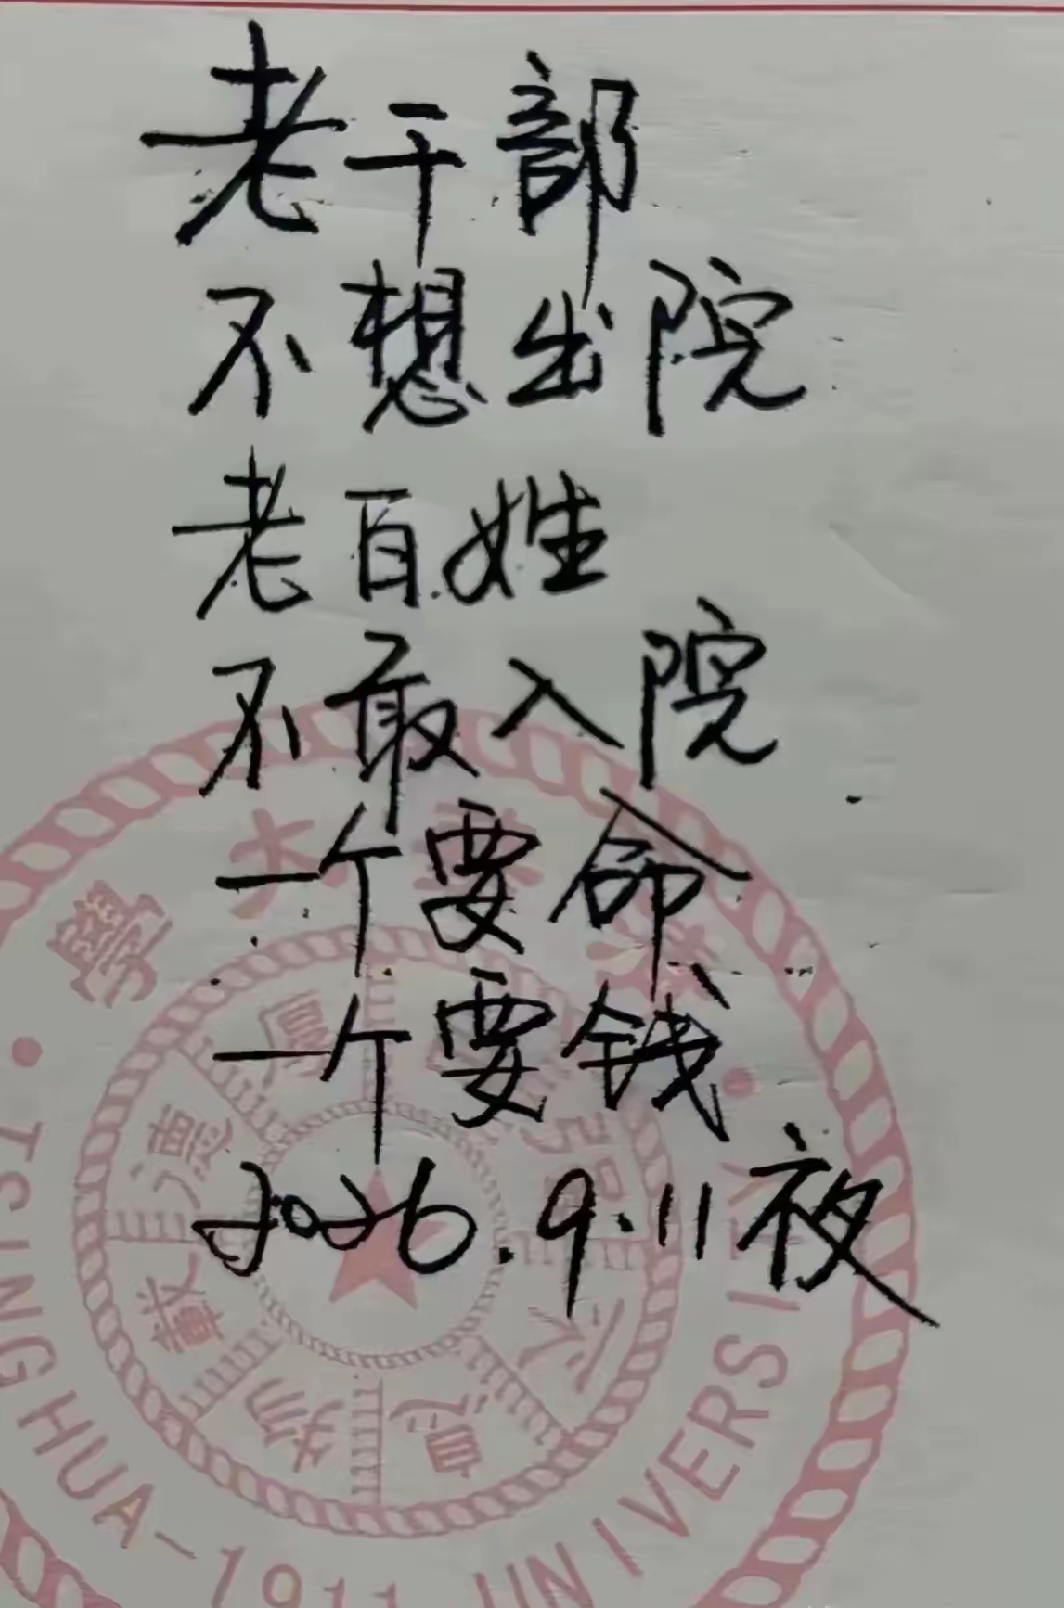 老干部
不想出院
老百姓
不敢入院
一个要命
一个要钱
2026.9.11夜
學大華清
TSINGHUA-1911-UNIVERSITY
自强不息
厚德載物